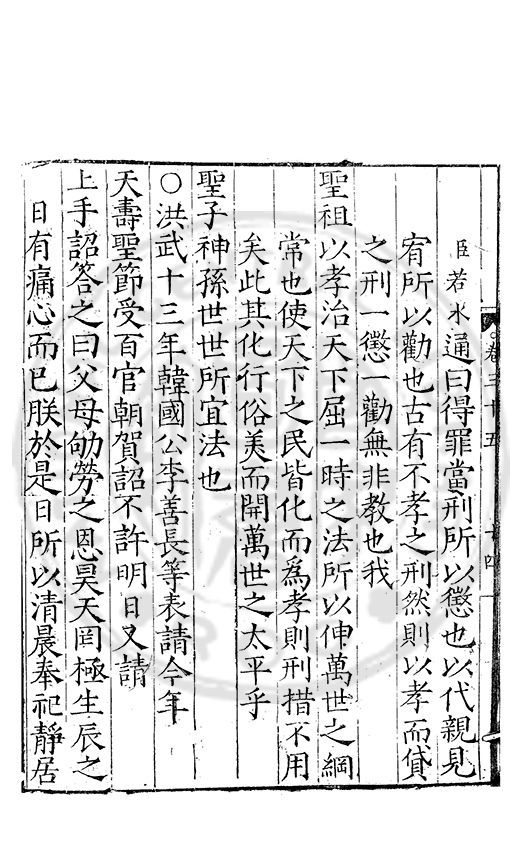 臣若水通曰得罪當刑所以懲也以代親見
宥所以勸也古有不孝之刑然則以孝而貸
之刑一懲一勸無非教也我
聖祖以孝治天下屈一時之法所以伸萬世之綱
常也使天下之民皆化而為孝則刑措不用
矣此其化行俗美而開萬世之太平乎
聖子神孫世世所宜法也
○洪武十三年韓國公李善長等表請今年
天壽聖節受百官朝賀詔不許明日又請
上手詔答之曰父母劬勞之恩昊天罔極生辰之
日有痛心而已朕於是日所以清晨奉祀靜居
卷三十五